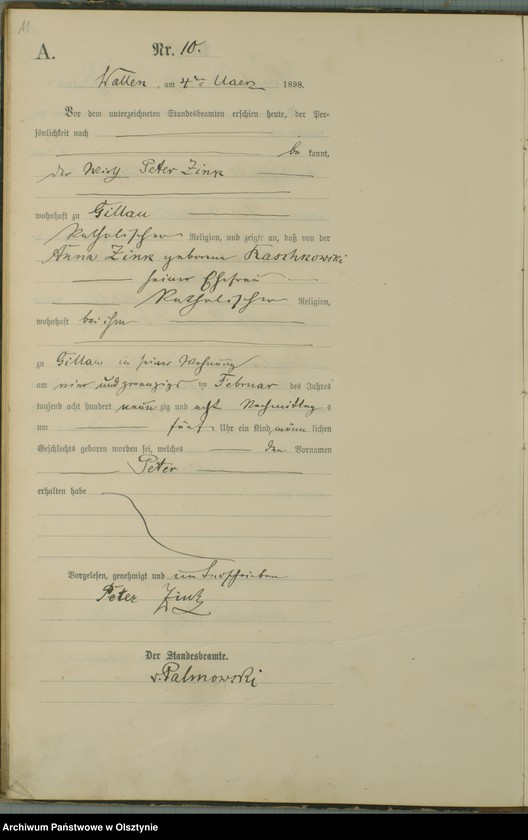 11
A.
Nr. 10.
Wallen, am 4ten Maerz 1898.
Vor dem unterzeichneten Standesbeamten erschien heute, der Per-
sönlichkeit nach
be kannt,
der Peter Zink
wohnhaft zu Gillau
katholischer Religion, und zeigte an, daß von der
Anna Zink geborene Raschkowski
seiner Ehefrau
katholischer Religion,
wohnhaft bei ihm
zu Gillau in seiner Wohnung
am vier und zwanzigs ten Februar des Jahres
tausend acht hundert neun zig und acht Nachmittag s
um fünf Uhr ein Kind männ lichen
Geschlechts geboren worden sei, welches den Vornamen
Peter
erhalten habe
Vorgelesen, genehmigt und unterschrieben
Peter Zink
Der Standesbeamte.
v. Palmowski
Archiwum Państwowe w Olsztynie